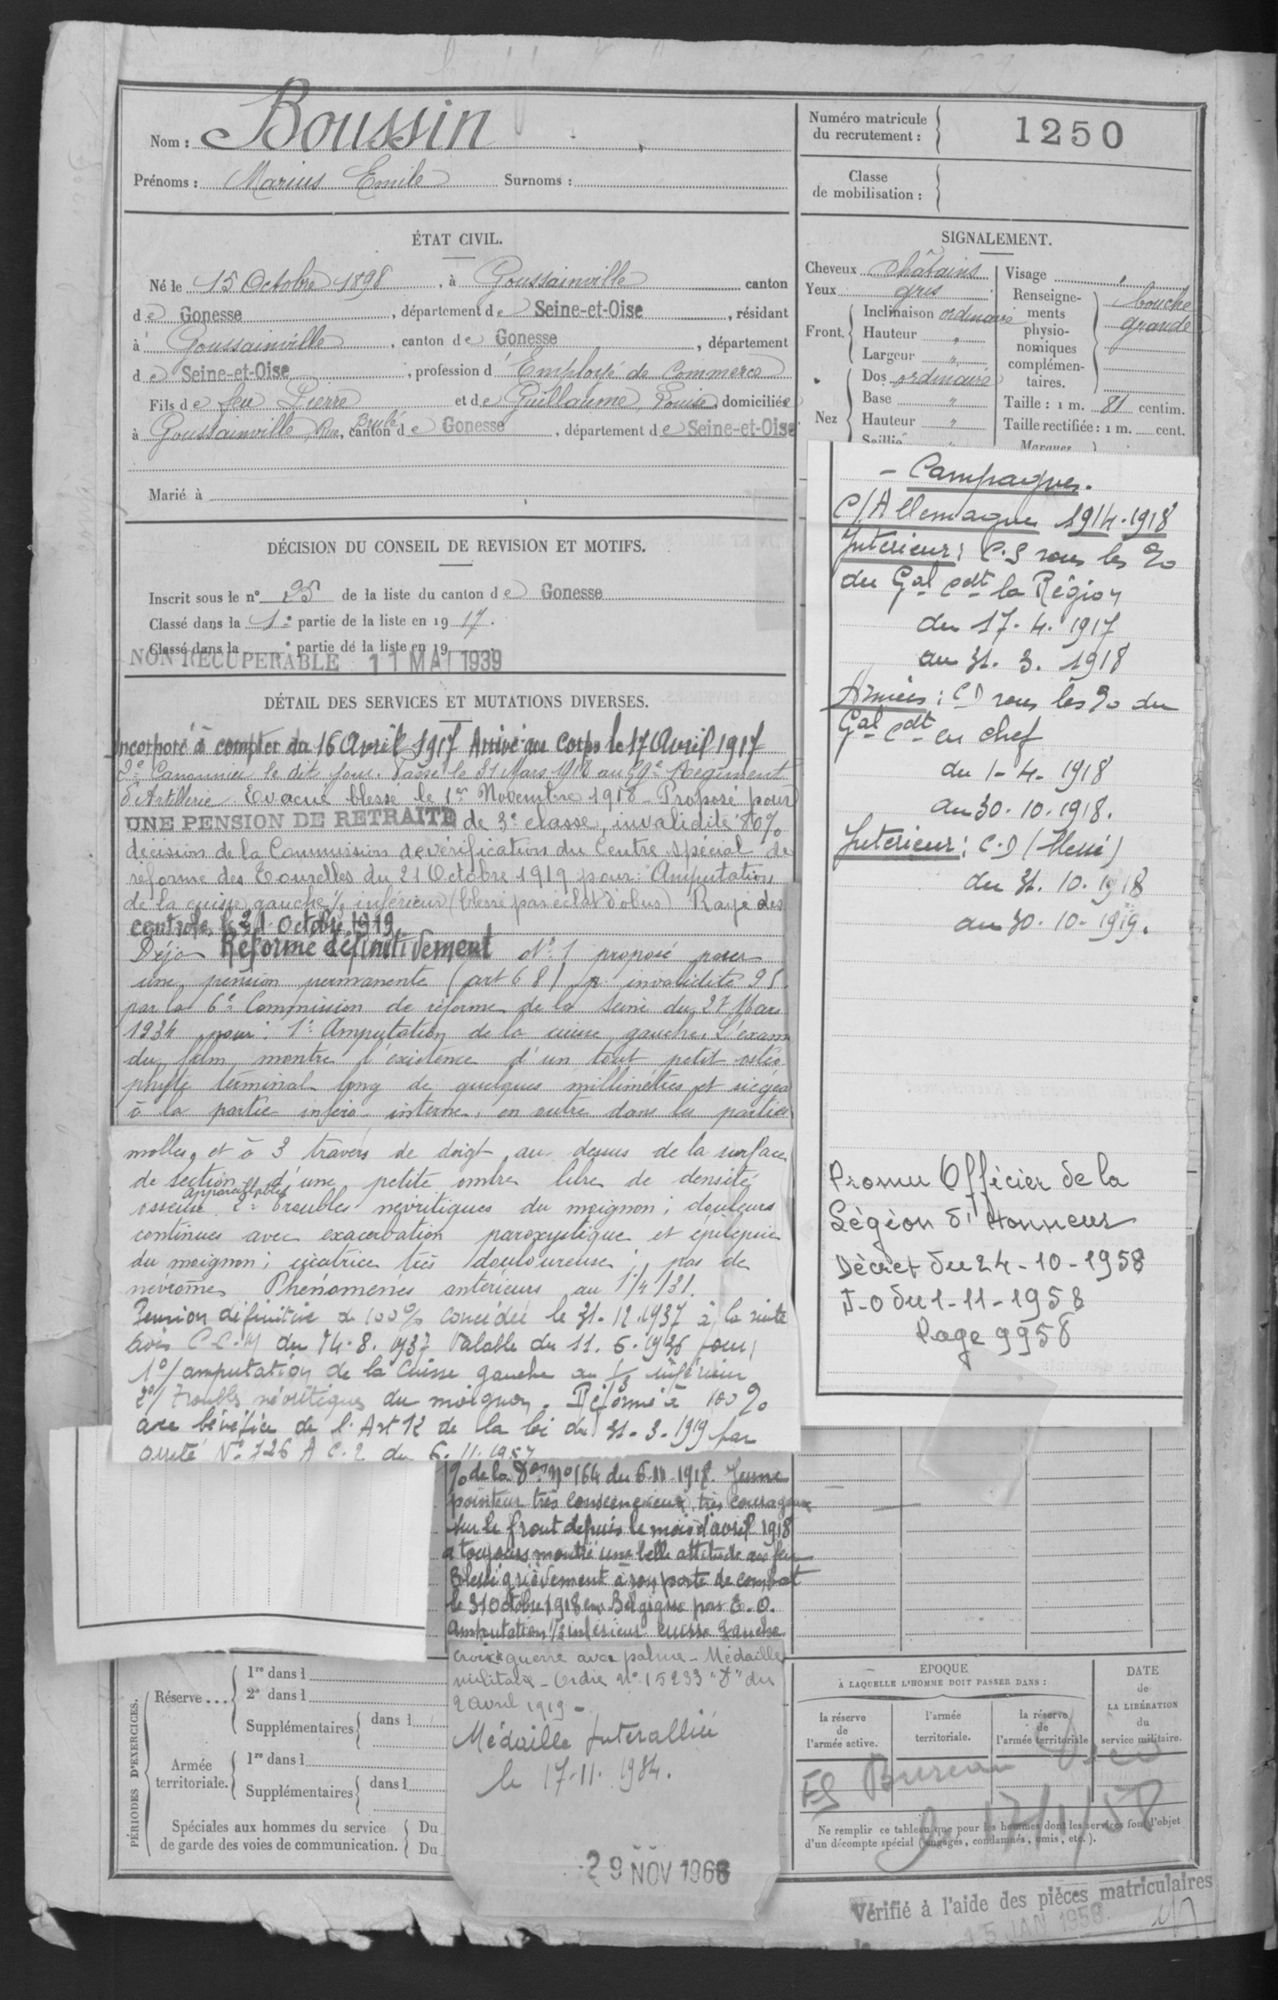 Nom : Boussin
Prénoms : Marius Emile Surnoms :
Numéro matricule
du recrutement : 1250
Classe
de mobilisation :
ÉTAT CIVIL.
Né le 15 Octobre 1898, à Goussainville canton
de Gonesse, département de Seine-et-Oise, résidant
à Goussainville, canton de Gonesse, département
de Seine-et-Oise, profession d'Employé de Commerce
Fils de feu Pierre et de Guillaume, Louise, domiciliée
à Goussainville, Rue Brulé, canton de Gonesse, département de Seine-et-Oise
Marié à
SIGNALEMENT.
Cheveux châtains
Yeux gris
Front. Inclinaison ordinaire
Hauteur "
Largeur "
Nez Dos ordinaire
Base "
Hauteur "
Saillie "
Visage
Renseigne-
ments
physio-
nomiques
complémen-
taires.
bouche
grande
Taille : 1 m. 81 centim.
Taille rectifiée : 1 m. cent.
Marques
DÉCISION DU CONSEIL DE REVISION ET MOTIFS.
Inscrit sous le n° 25 de la liste du canton de Gonesse
Classé dans la 1e partie de la liste en 1917.
Classé dans la partie de la liste en 19
NON RECUPERABLE 11 MAI 1939
DÉTAIL DES SERVICES ET MUTATIONS DIVERSES.
Incorporé à compter du 16 Avril 1917 Arrivé au Corps le 17 Avril 1917
2e Canonnier le dit jour. Passé le 31 Mars 1918 au 59e Régiment
d'Artillerie. Evacué blessé le 1er Novembre 1918 - Proposé pour
UNE PENSION DE RETRAITE de 3e classe, invalidité 80%
décision de la Commission de vérification du Centre spécial de
réforme des Tourelles du 21 Octobre 1919 pour: Amputation
de la cuisse gauche ⅓ inférieur (blessé par éclat d'obus) Rayé des
controles le 21 Octobre 1919.
Déjà Réformé définitivement N° 1 proposé pour
une pension permanente (art 68) p. invalidité 95
par la 6e Commission de réforme de la Seine du 27 Mars
1934 pour: 1e Amputation de la cuisse gauche. L'exam
du film montre l'existence d'un tout petit ostéo
phyte terminal long de quelques millimètres et siégea
à la partie inféro-interne, en outre dans les parties
molles, et à 3 travers de doigt au dessus de la surface
de section d'une petite ombre libre de densité
osseuse. 2e Troubles névritiques du moignon; douleurs
continues avec exacerbation paroxystique et épilepsie
du moignon; cicatrice très douloureuse; pas de
névrome. Phénomènes antérieurs au
Pension définitive à 100% concédée le 31-12-1937 à la suite
avis C.C.M du 14.8.1937 Valable du 11.6.1936 pour:
1°/ amputation de la Cuisse gauche au ⅓ inférieur
2°/ Troubles névritiques du moignon. Réformé à 100%
avec bénéfice de l'Art 12 de la loi du 31-3-1919 par
arreté N° 726 A C.2 du 6.11.1957
- Campagnes.
C/Allemagne 1914-1918
Intérieur: C.S sous les Oo
du Gal Cdt la Région
du 17.4.1917
au 31.3.1918
Armées: CD sous les Oo du
Gal Cdt en chef
du 1-4-1918
au 30.10.1918.
Intérieur: C.D (blessé)
du 31.10.1918
au 30.10.1919.
Promu Officier de la
Légion d'Honneur
Décret du 24-10-1958
J-O du 1-11-1958
Page 9958
Oo de la Don N° 164 du 6.11.1918. Jeune
pointeur très consciencieux, très courageux
sur le front depuis le mois d'avril 1918
a toujours montré une belle attitude au feu
Blessé grièvement à son poste de combat
le 31 Octobre 1918 en Belgique par E.O.
Amputation ⅓ inférieur cuisse gauche
Croix guerre avec palme - Médaille
militaire - Ordre N° 15233 "D" du
2 avril 1919 -
Médaille Interalliée
le 17-11.
29 NOV 1966
PÉRIODES D'EXERCICES.
Réserve... 1re dans l
2e dans l
Supplémentaires dans l
Armée
territoriale. 1re dans l
Supplémentaires dans l
Spéciales aux hommes du service
de garde des voies de communication. Du
Du
ÉPOQUE
À LAQUELLE L'HOMME DOIT PASSER DANS :
la réserve
de
l'armée active.
l'armée
territoriale.
la réserve
de
l'armée territoriale
DATE
de
LA LIBÉRATION
du
service militaire.
Bureau
le 17/1/58
Ne remplir ce tableau que pour les hommes dont les services font l'objet
d'un décompte spécial (engagés, condamnés, omis, etc.).
Vérifié à l'aide des pièces matriculaires
15 JAN 1958